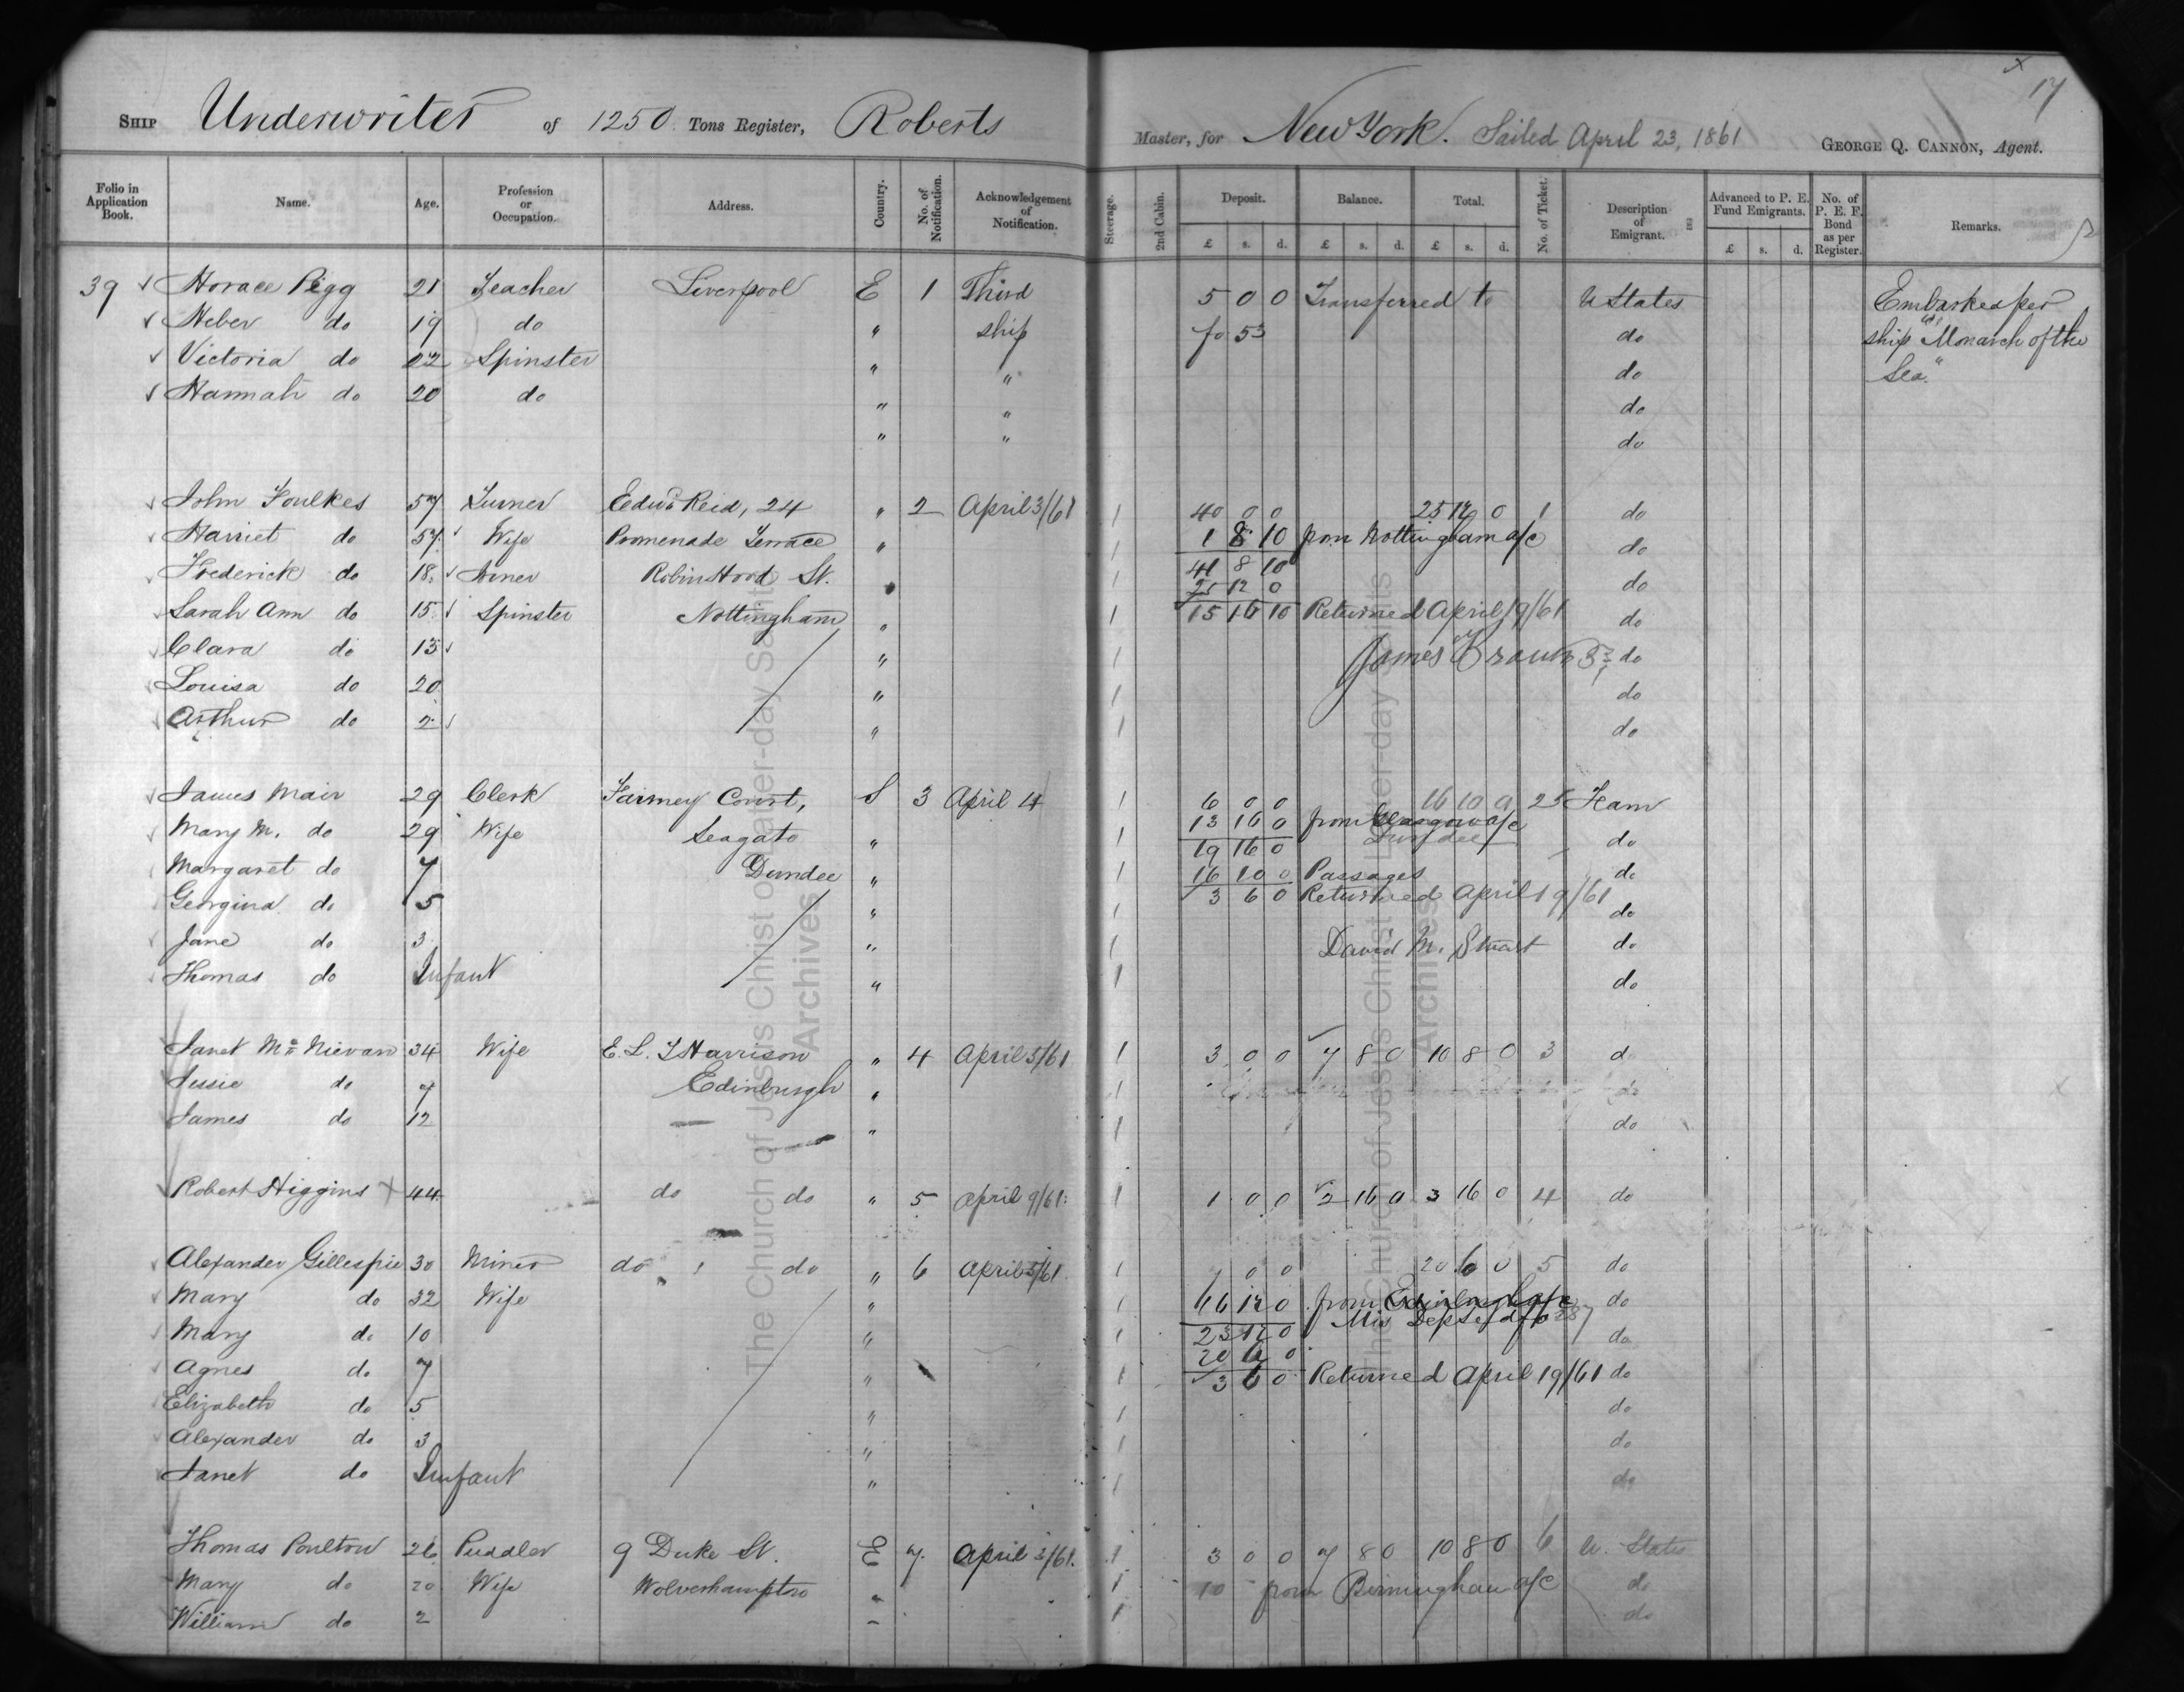 17
SHIP Underwriter of 1250 Tons Register, Roberts Master, for New York. Sailed April 23, 1861 GEORGE Q. CANNON, Agent.
Folio in Application Book. Name. Age. Profession or Occupation. Address. Country. No. of Notification. Acknowledgement of Notification. Steerage. 2nd Cabin. Deposit. Balance. Total. No. of Ticket. Description of Emigrant. Advanced to P. E. Fund Emigrants. No. of P. E. F. Bond as per Register. Remarks.
£ s. d. £ s. d. £ s. d. £ s. d.
39 Horace Pigg 21 Teacher Liverpool E 1 Third 5 0 0 Transferred to U States Embarked per
Heber do 19 do " ship fo 53 do ship "Monarch of the
Victoria do 22 Spinster " " do Sea."
Hannah do 20 do " " do
" " do
John Foulkes 57 Turner Edwd Reid, 24 " 2 April 3/61 1 40 0 0 25 12 0 1 do
Harriet do 57 Wife Promenade Terrace " 1 1 8 10 from Nottingham a/c do
Frederick do 18 Joiner Robin Hood St. " 1 41 8 10 do
25 12 0
Sarah Ann do 15 Spinster Nottingham " 1 15 16 10 Returned April 19/61 do
Clara do 13 " 1 James Brown do
Louisa do 20 " 1 do
Arthur do 2 " 1 do
James Mair 29 Clerk Fairney Court, S 3 April 4 1 6 0 0 16 10 0 25 Fam
13 16 0 from Glasgow a/c
Mary M. do 29 Wife Seagate " 1 19 16 0 Dundee do
Margaret do 7 Dundee " 1 16 10 0 Passages do
Georgina do 5 " 1 3 6 0 Returned April 19/61 do
Jane do 3 " 1 David M. Stuart do
Thomas do Infant " 1 do
Janet McNievan 34 Wife E. L. T Harrison " 4 April 5/61 1 3 0 0 7 8 0 10 8 0 3 do
Jessie do 7 Edinburgh " 1 do
James do 12 " 1 do
Robert Higgins × 44 do do " 5 April 9/61 1 1 0 0 2 16 0 3 16 0 4 do
Alexander Gillespie 30 Miner do do " 6 April 5/61 1 7 0 0 20 6 0 5 do
Mary do 32 Wife " 1 16 12 0 from Edinburgh a/c do
Mary do 10 " 1 23 12 0 do
20 6 0
Agnes do 7 " 1 3 6 0 Returned April 19/61 do
Elizabeth do 5 " 1 do
Alexander do 3 " 1 do
Janet do Infant " 1 do
Thomas Poulton 26 Puddler 9 Duke St. E 7 April 3/61. 1 3 0 0 7 8 0 10 8 0 6 U. States
Mary do 20 Wife Wolverhampton " 1 10 from Birmingham a/c do
William do 2 " 1 do
The Church of Jesus Christ of Latter-day Saints
Archives
The Church of Jesus Christ of Latter-day Saints
Archives